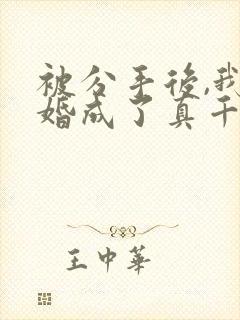 被分手後,我
婚成了真千
王中華